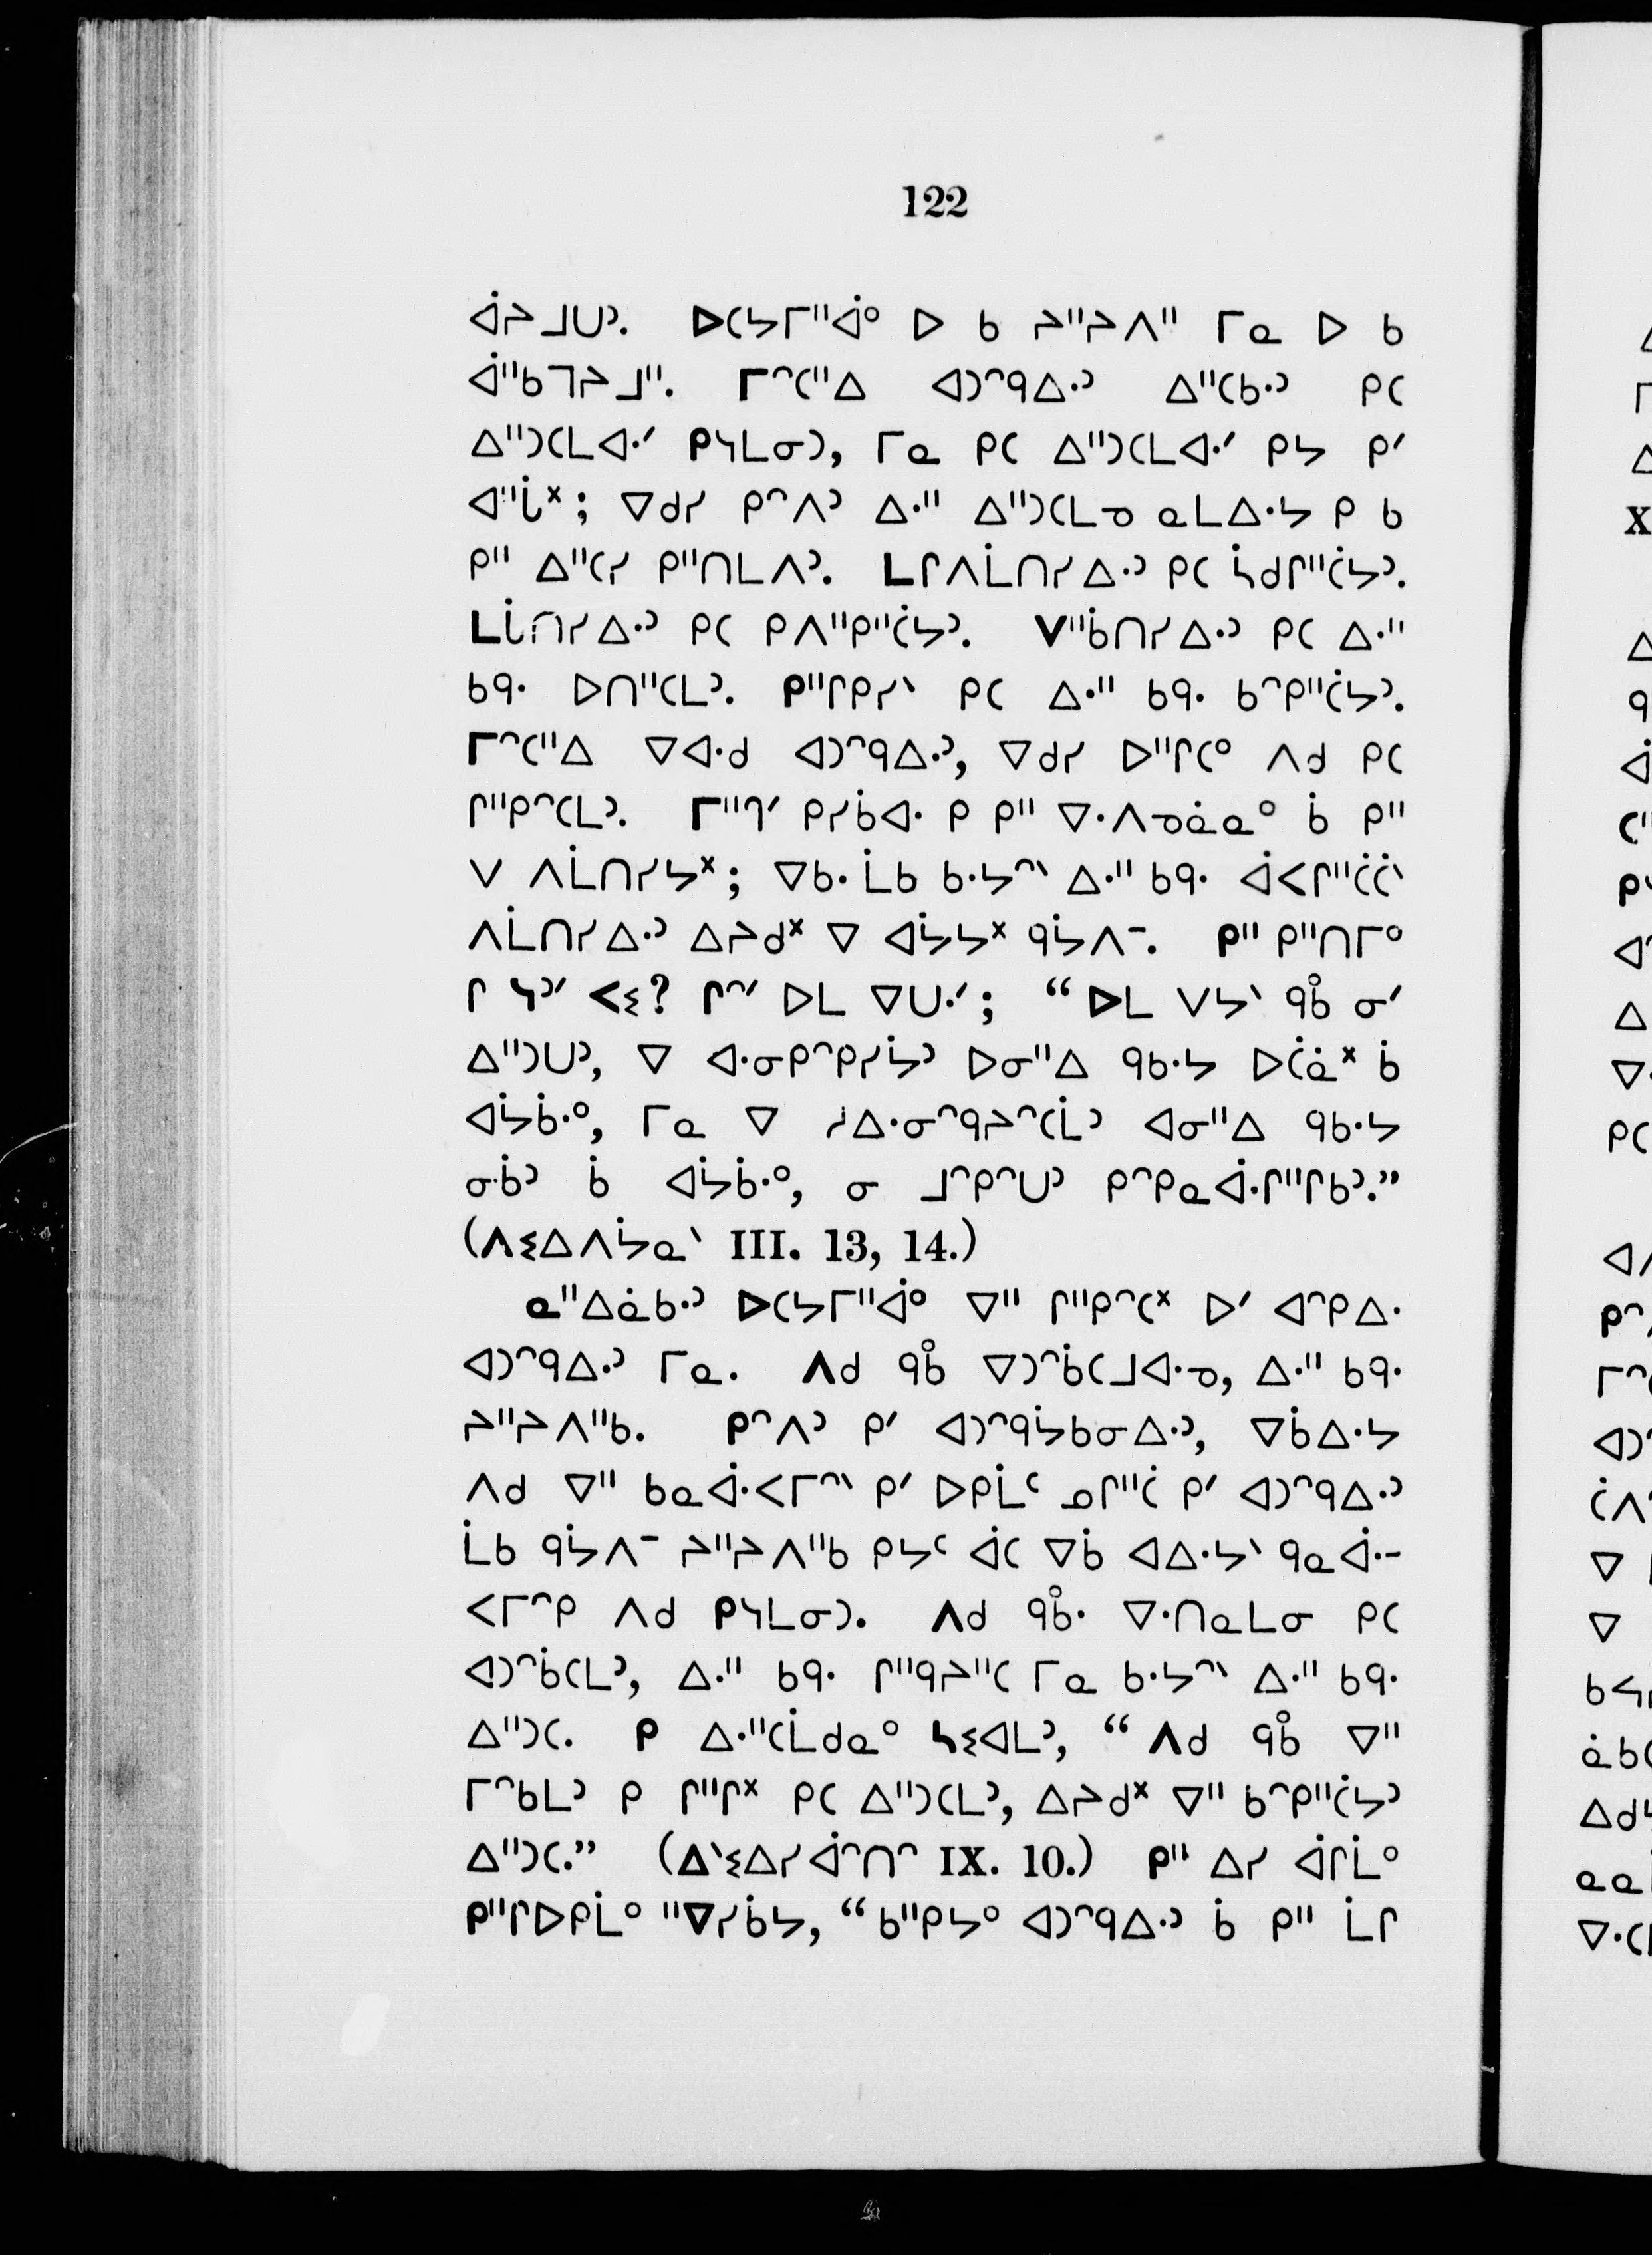 122
ᐋᔨᒧᑌᐣ. ᐅᑕᔭᒥᐦᐋᐤ ᐅ ᑲ ᔨᐦᔨᐱᐦ ᒥᓇ ᐅ ᑲ
ᐋᐦᑲᒣᔨᒧᐦ. ᒥᐢᑕᐦᐃ ᐊᑐᐢᑫᐃᐧᐣ ᐃᐦᑕᑲᐧᐣ ᑭᑕ
ᐃᐦᑐᑕᒪᐊᐧᐟ ᑭᓴᒪᓂᑐ, ᒥᓇ ᑭᑕ ᐃᐦᑐᑕᒪᐊᐧᐟ ᑭᔭ ᑭᐟ
ᐊᐦᒑᕽ; ᐁᑯᓯ ᑭᐢᐱᐣ ᐃᐧᐦ ᐃᐦᑐᑕᒪᓄ ᓇᒪᐃᐧᔭ ᑭ ᑲ
ᑭᐦ ᐃᐦᑕᓯ ᑭᐦᑎᒪᐱᐣ. ᒪᒋᐱᒫᑎᓯᐃᐧᐣ ᑭᑕ ᓵᑯᒋᐦᑖᔭᐣ.
ᒪᒑᑎᓯᐃᐧᐣ ᑭᑕ ᑭᐱᐦᑭᐦᑖᔭᐣ. ᐯᐦᑳᑎᓯᐃᐧᐣ ᑭᑕ ᐃᐧᐦ
ᑲᑫᐧ ᐅᑎᐦᑕᒪᐣ. ᑭᐦᒋᑭᓯᐠ ᑭᑕ ᐃᐧᐦ ᑲᑫᐧ ᑲᐢᑭᐦᑖᔭᐣ.
ᒥᐢᑕᐦᐃ ᐁᐊᐧᑯ ᐊᑐᐢᑫᐃᐧᐣ, ᐁᑯᓯ ᐅᐦᒋᑕᐤ ᐱᑯ ᑭᑕ
ᒋᐦᑭᐢᑕᒪᐣ. ᒥᐦᒉᐟ ᑭᓯᑳᐊᐧ ᑭ ᑭᐦ ᐁᐧᐱᓄᓈᓇᐤ ᑳ ᑭᐦ
ᐯ ᐱᒫᑎᓯᔭᕽ; ᐁᑲᐧ ᒫᑲ ᑲᐧᔭᐢᐠ ᐃᐧᐦ ᑲᑫᐧ ᐋᐸᒋᐦᑖᑖᐠ
ᐱᒫᑎᓯᐃᐧᐣ ᐃᔨᑯᕽ ᐁ ᐊᔮᔭᕽ ᑫᔮᐱᐨ. ᑭᐦ ᑭᐦᑎᒥᐤ
ᒋ ᓴᐣᐟ ᐸᓬ? ᒋᐢᐟ ᐅᒪ ᐁᑌᐧᐟ; “ ᐅᒪ ᐯᔭᐠ ᑫᑳᐤ ᓂᐟ
ᐃᐦᑐᑌᐣ, ᐁ ᐊᐧᓂᑭᐢᑭᓯᔮᐣ ᐅᓂᐦᐃ ᑫᑲᐧᔭ ᐅᑖᓈᕽ ᑳ
ᐊᔮᑳᐧᐤ, ᒥᓇ ᐁ ᓰᐃᐧᓂᐢᑫᔨᐢᑕᒫᐣ ᐊᓂᐦᐃ ᑫᑲᐧᔭ
ᓂᑳᐣ ᑳ ᐊᔮᑳᐧᐤ, ᓂ ᒧᐢᑭᐢᑌᐣ ᑭᐢᑭᓇᐋᐧᒋᐦᒋᑲᐣ.”
(ᐱᓬᐃᐱᔮᓇᐠ III. 13, 14.)
ᓇᐦᐃᓈᑲᐧᐣ ᐅᑕᔭᒥᐦᐋᐤ ᐁᐦ ᒋᐦᑭᐢᑕᕽ ᐅᐟ ᐊᐢᑭᐃᐧ
ᐊᑐᐢᑫᐃᐧᐣ ᒥᓇ. ᐱᑯ ᑫᑳᐤ ᐁᑐᐢᑳᑕᒧᐊᐧᓄ, ᐃᐧᐦ ᑲᑫᐧ
ᔨᐦᔨᐱᐦᑲ. ᑭᐢᐱᐣ ᑭᐟ ᐊᑐᐢᑫᔮᑲᓂᐃᐧᐣ, ᐁᑳᐃᐧᔭ
ᐱᑯ ᐁᐦ ᑲᓇᐋᐧᐸᒥᐢᐠ ᑭᐟ ᐅᑭᒫᑦ ᓅᒋᐦᑖ ᑭᐟ ᐊᑐᐢᑫᐃᐧᐣ
ᒫᑲ ᑫᔮᐱᐨ ᔨᐦᔨᐱᐦᑲ ᑭᔭᑦ ᐋᑕ ᐁᑳ ᐊᐃᐧᔭᐠ ᑫᓇᐋᐧ-
ᐸᒥᐢᑭ ᐱᑯ ᑭᓴᒪᓂᑐ. ᐱᑯ ᑫᑳᐤᐧ ᐁᐧᑎᓇᒪᓂ ᑭᑕ
ᐊᑐᐢᑳᑕᒪᐣ, ᐃᐧᐦ ᑲᑫᐧ ᒋᐦᑫᔨᐦᑕ ᒥᓇ ᑲᐧᔭᐢᐠ ᐃᐧᐦ ᑲᑫᐧ
ᐃᐦᑐᑕ. ᑭ ᐃᐧᐦᑕᒫᑯᓇᐤ ᓴᓬᐊᒪᐣ, “ ᐱᑯ ᑫᑳᐤ ᐁᐦ
ᒥᐢᑲᒪᐣ ᑭ ᒋᐦᒋᕽ ᑭᑕ ᐃᐦᑐᑕᒪᐣ, ᐃᔨᑯᕽ ᐁᐦ ᑲᐢᑭᐦᑖᔭᐣ
ᐃᐦᑐᑕ.” (ᐃᐠᓬᐃᓯᐋᐢᑎᐢ IX. 10.) ᑭᐦ ᐃᓯ ᐋᒋᒫᐤ
ᑭᐦᒋᐅᑭᒫᐤ ᐦᐁᓯᑳᔭ, “ ᑲᐦᑭᔭᐤ ᐊᑐᐢᑫᐃᐧᐣ ᑳ ᑭᐦ ᒫᒋ